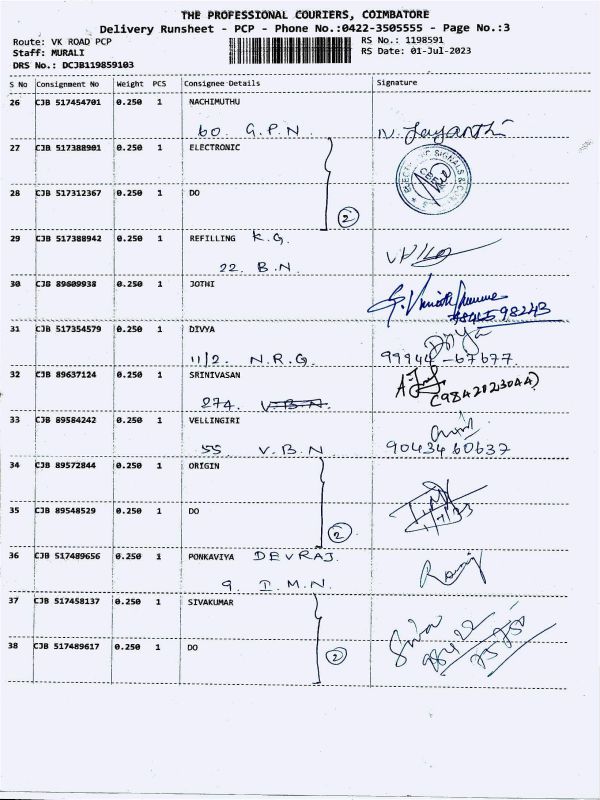 THE PROFESSIONAL COURIERS, COIMBATORE
Delivery Runsheet - PCP - Phone No.:0422-3505555 - Page No.:3
Route: VK ROAD PCP RS No.: 1198591
Staff: MURALI RS Date: 01-Jul-2023
DRS No.: DCJB119859103
S No Consignment No Weight PCS Consignee Details Signature
26 CJB 517454701 0.250 1 NACHIMUTHU
60. G.P.N. N. Jayanthi
27 CJB 517388901 0.250 1 ELECTRONIC
28 CJB 517312367 0.250 1 DO
2
29 CJB 517388942 0.250 1 REFILLING K.G.
22. B.N.
30 CJB 89609938 0.250 1 JOTHI
98243
31 CJB 517354579 0.250 1 DIVYA Divya
11/2. N.R.G. 99944-67677
32 CJB 89637124 0.250 1 SRINIVASAN
274. V.B.N. (9842023044)
33 CJB 89584242 0.250 1 VELLINGIRI
55 V.B.N 9043460637
34 CJB 89572844 0.250 1 ORIGIN
35 CJB 89548529 0.250 1 DO
2
36 CJB 517489656 0.250 1 PONKAVIYA DEVRAJ.
9. I.M.N.
37 CJB 517458137 0.250 1 SIVAKUMAR
38 CJB 517489617 0.250 1 DO Siva
2